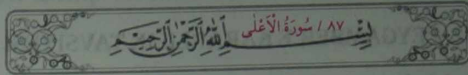 ٨٧ / سُورَةُ الْأَعْلَى
بِسْمِ اللّٰهِ الرَّحْمٰنِ الرَّحِيمِ